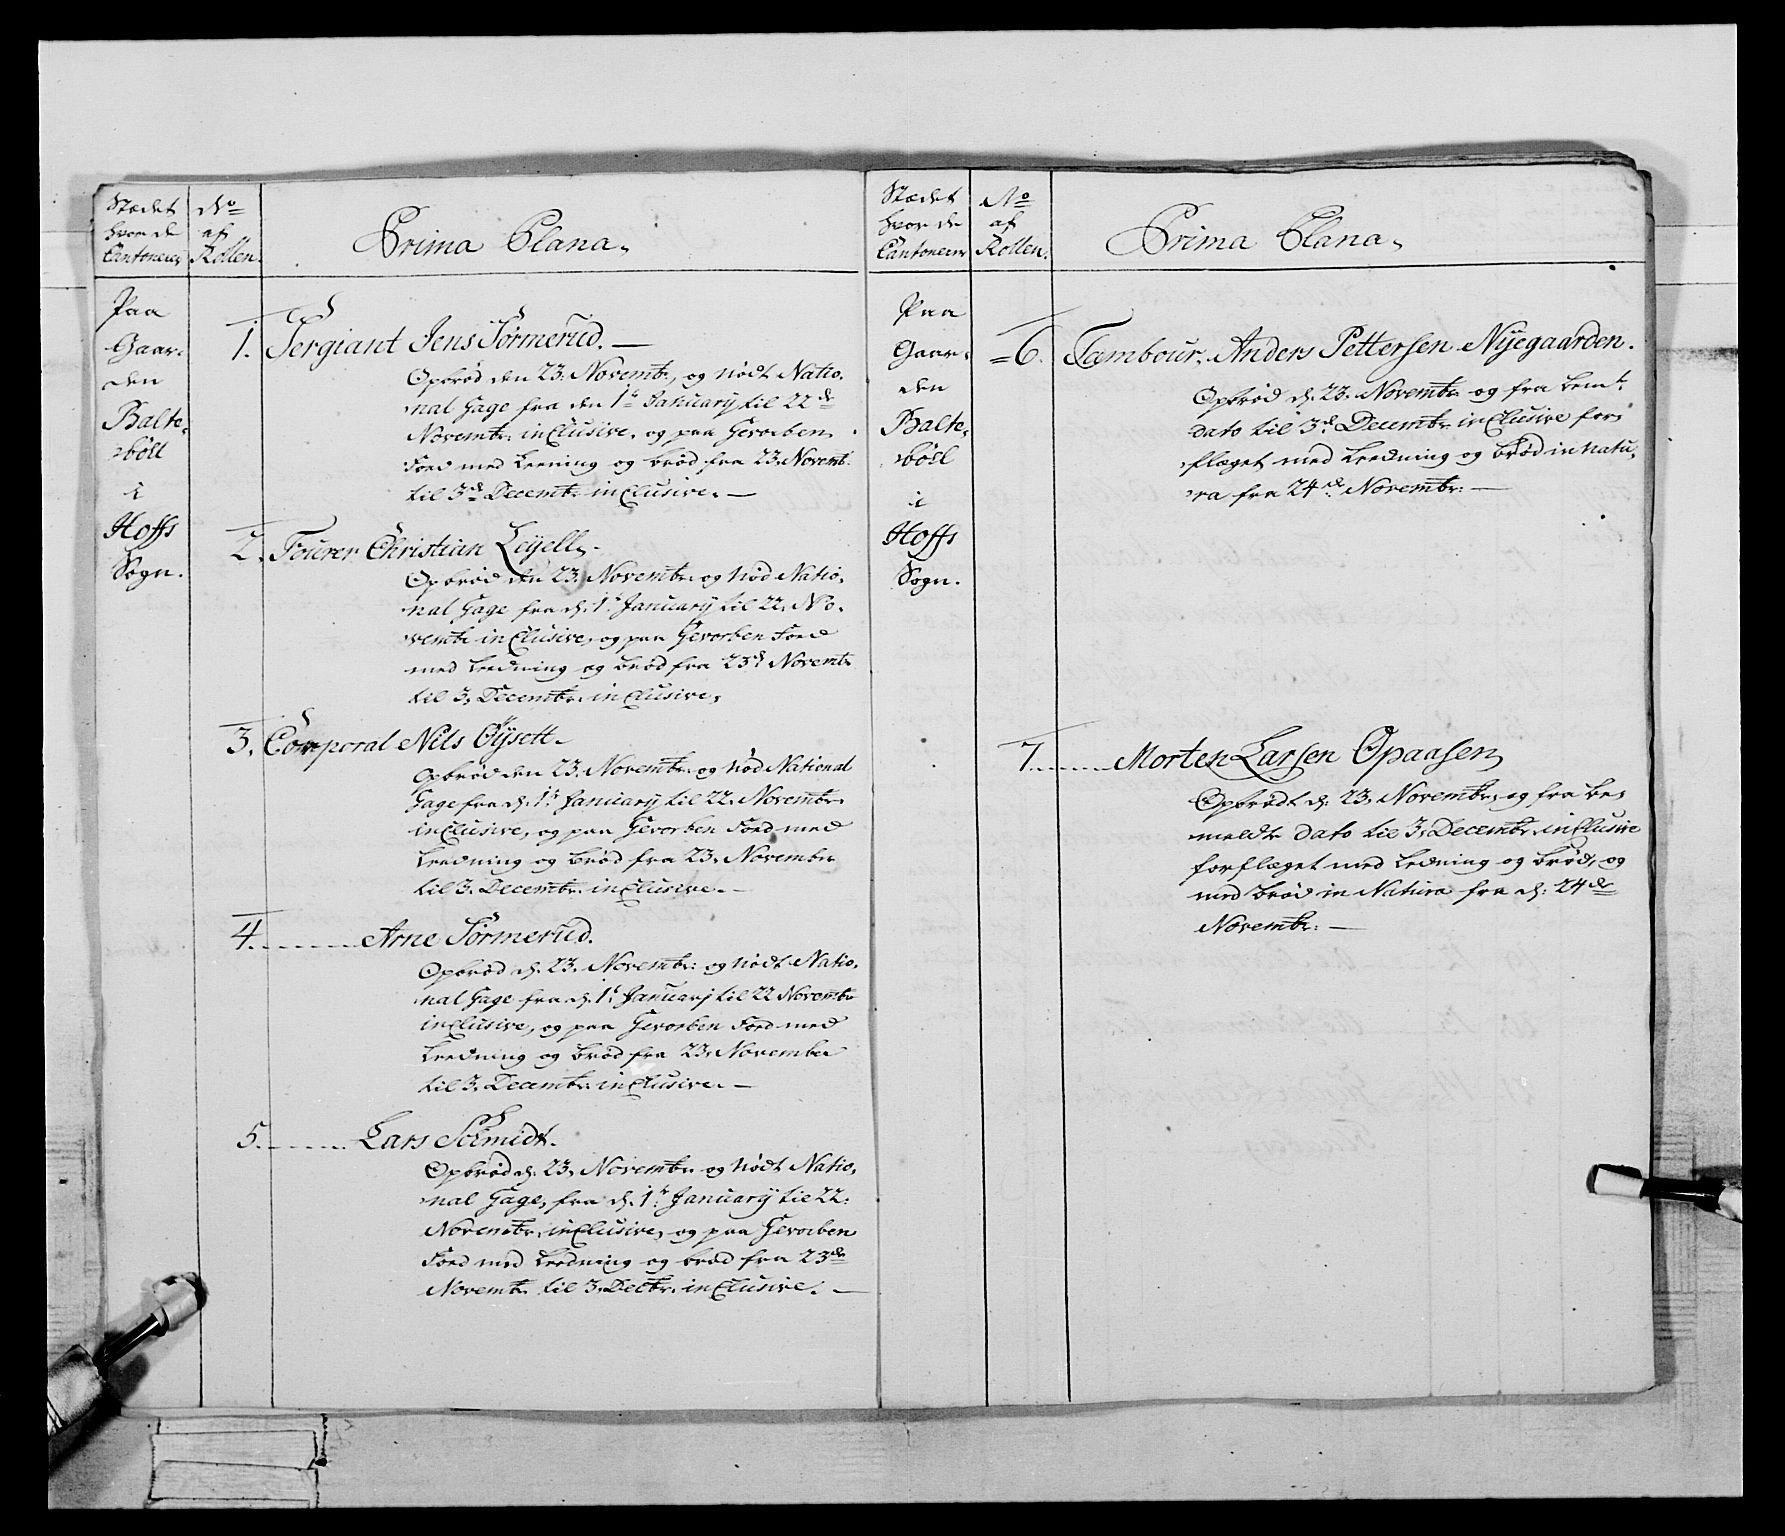 Stædet
hvor de
Cantonerer
No
af
Rollen.
Prima Plana,
Paa
Gaar-
den
Balte-
böll
i
Hoffs
Sogn.
1. Sergiant Jens Sørmerud. —
Opbrød den 23. Novembr, og nødt Natio-
nal Gage fra den 1te January til 22de
Novembr: inclusive, og paa Gevorben
Foed med Leening og brød fra 23. Novembr.
til 3de Decembr. inclusive. —
2. Fourer Christian Leyell.
Opbrød den 23. Novembr. og nød Natio-
nal Gage fra d. 1t January til 22. No-
vembr inclusive, og paa Gevorben Foed
med Leedning og brød fra 23d Novembr
til 3. Decembr. inclusive,
3. Corporal Nils Öÿsett.
Opbrød den 23. Novembr. og nød National
Gage fra d. 1t January til 22. Novembr.
inclusive, og paa Gevorben Foed med
Leedning og brød fra 23. Novembr
til 3. Decembr. inclusive. —
4. ........ Arne Sørmerud.
Opbrød d. 23. Novembr: og nødt Natio-
nal Gage fra d. 1t January til 22 Novembr
inclusive, og paa Gevorben Foed med
Leedning og brød fra 23. November
til 3. Decembr. inclusive. —
5. ........ Lars Schmidt.
Opbrød d. 23. Novembr. og nødt Natio-
nal Gage, fra d. 1t January til 22.
Novembr. inclusive, og paa Gevorben
Foed med Leedning og brød fra 23de
Novembr. til 3. Decbr. inclusive. —
Stædet
hvor de
Cantonerer
No
af
Rollen.
Prima Plana,
Paa
Gaar-
den
Balte-
böll
i
Hoffs
Sogn.
6. Tambour. Anders Pettersen Nÿegaarden.
Opbrød d. 23. Novembr. og fra bemt.
dato til 3d Decembr. inclusive for-
flæget med Leedning og brød in natu-
ra fra 24de Novembr. —
7. ........ Morten Larsen Opaasen
Opbrødt d. 23. Novembr. og fra be-
meldte dato til 3. Decembr. inclusive
forflæget med Ledning og brød, og
med brød in Natura fra d. 24de
Novembr. —